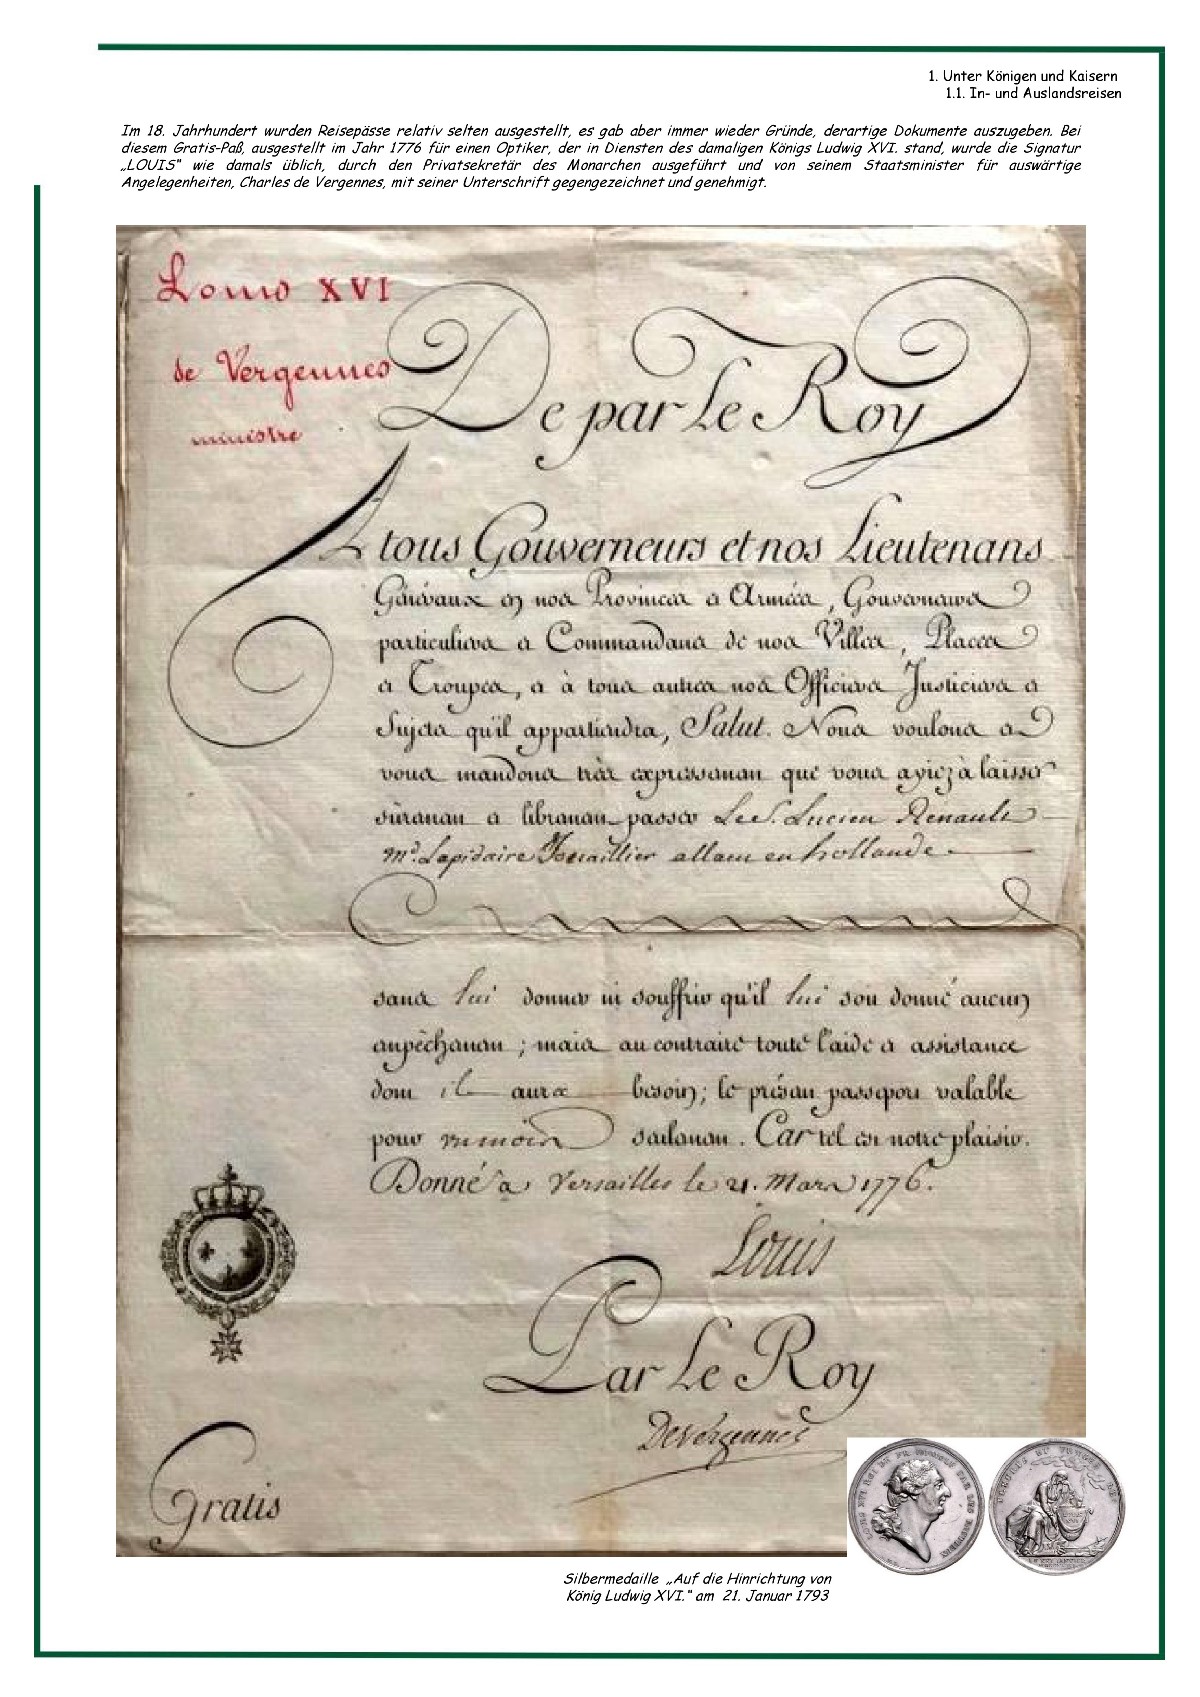 1. Unter Königen und Kaisern
1.1. In- und Auslandsreisen
Im 18. Jahrhundert wurden Reisepässe relativ selten ausgestellt, es gab aber immer wieder Gründe, derartige Dokumente auszugeben. Bei
diesem Gratis-Paß, ausgestellt im Jahr 1776 für einen Optiker, der in Diensten des damaligen Königs Ludwig XVI. stand, wurde die Signatur
„LOUIS“ wie damals üblich, durch den Privatsekretär des Monarchen ausgeführt und von seinem Staatsminister für auswärtige
Angelegenheiten, Charles de Vergennes, mit seiner Unterschrift gegengezeichnet und genehmigt.
Louis XVI
de Vergennes
ministre
De par Le Roy
A tous Gouverneurs et nos Lieutenans
Généraux en nos Provinces et Armées, Gouverneurs
particuliers et Commandans de nos Villes, Places
et Troupes, et à tous autres nos Officiers Justiciers et
Sujets qu'il appartiendra, Salut. Nous voulons et
vous mandons très expressement que vous ayiez à laisser
sûrement et librement passer Le S. Lucien Renault
Md. Lapidaire Jouaillier allant en hollande
sans lui donner ni souffrir qu'il lui soit donné aucun
empêchement ; mais au contraire toute l'aide et assistance
dont il aura besoin ; le présent passeport valable
pour un mois seulement. Car tel est notre plaisir.
Donné à Versailles le 21. Mars 1776.
Louis
Par Le Roy
De Vergennes
Gratis
Silbermedaille „Auf die Hinrichtung von
König Ludwig XVI.“ am 21. Januar 1793